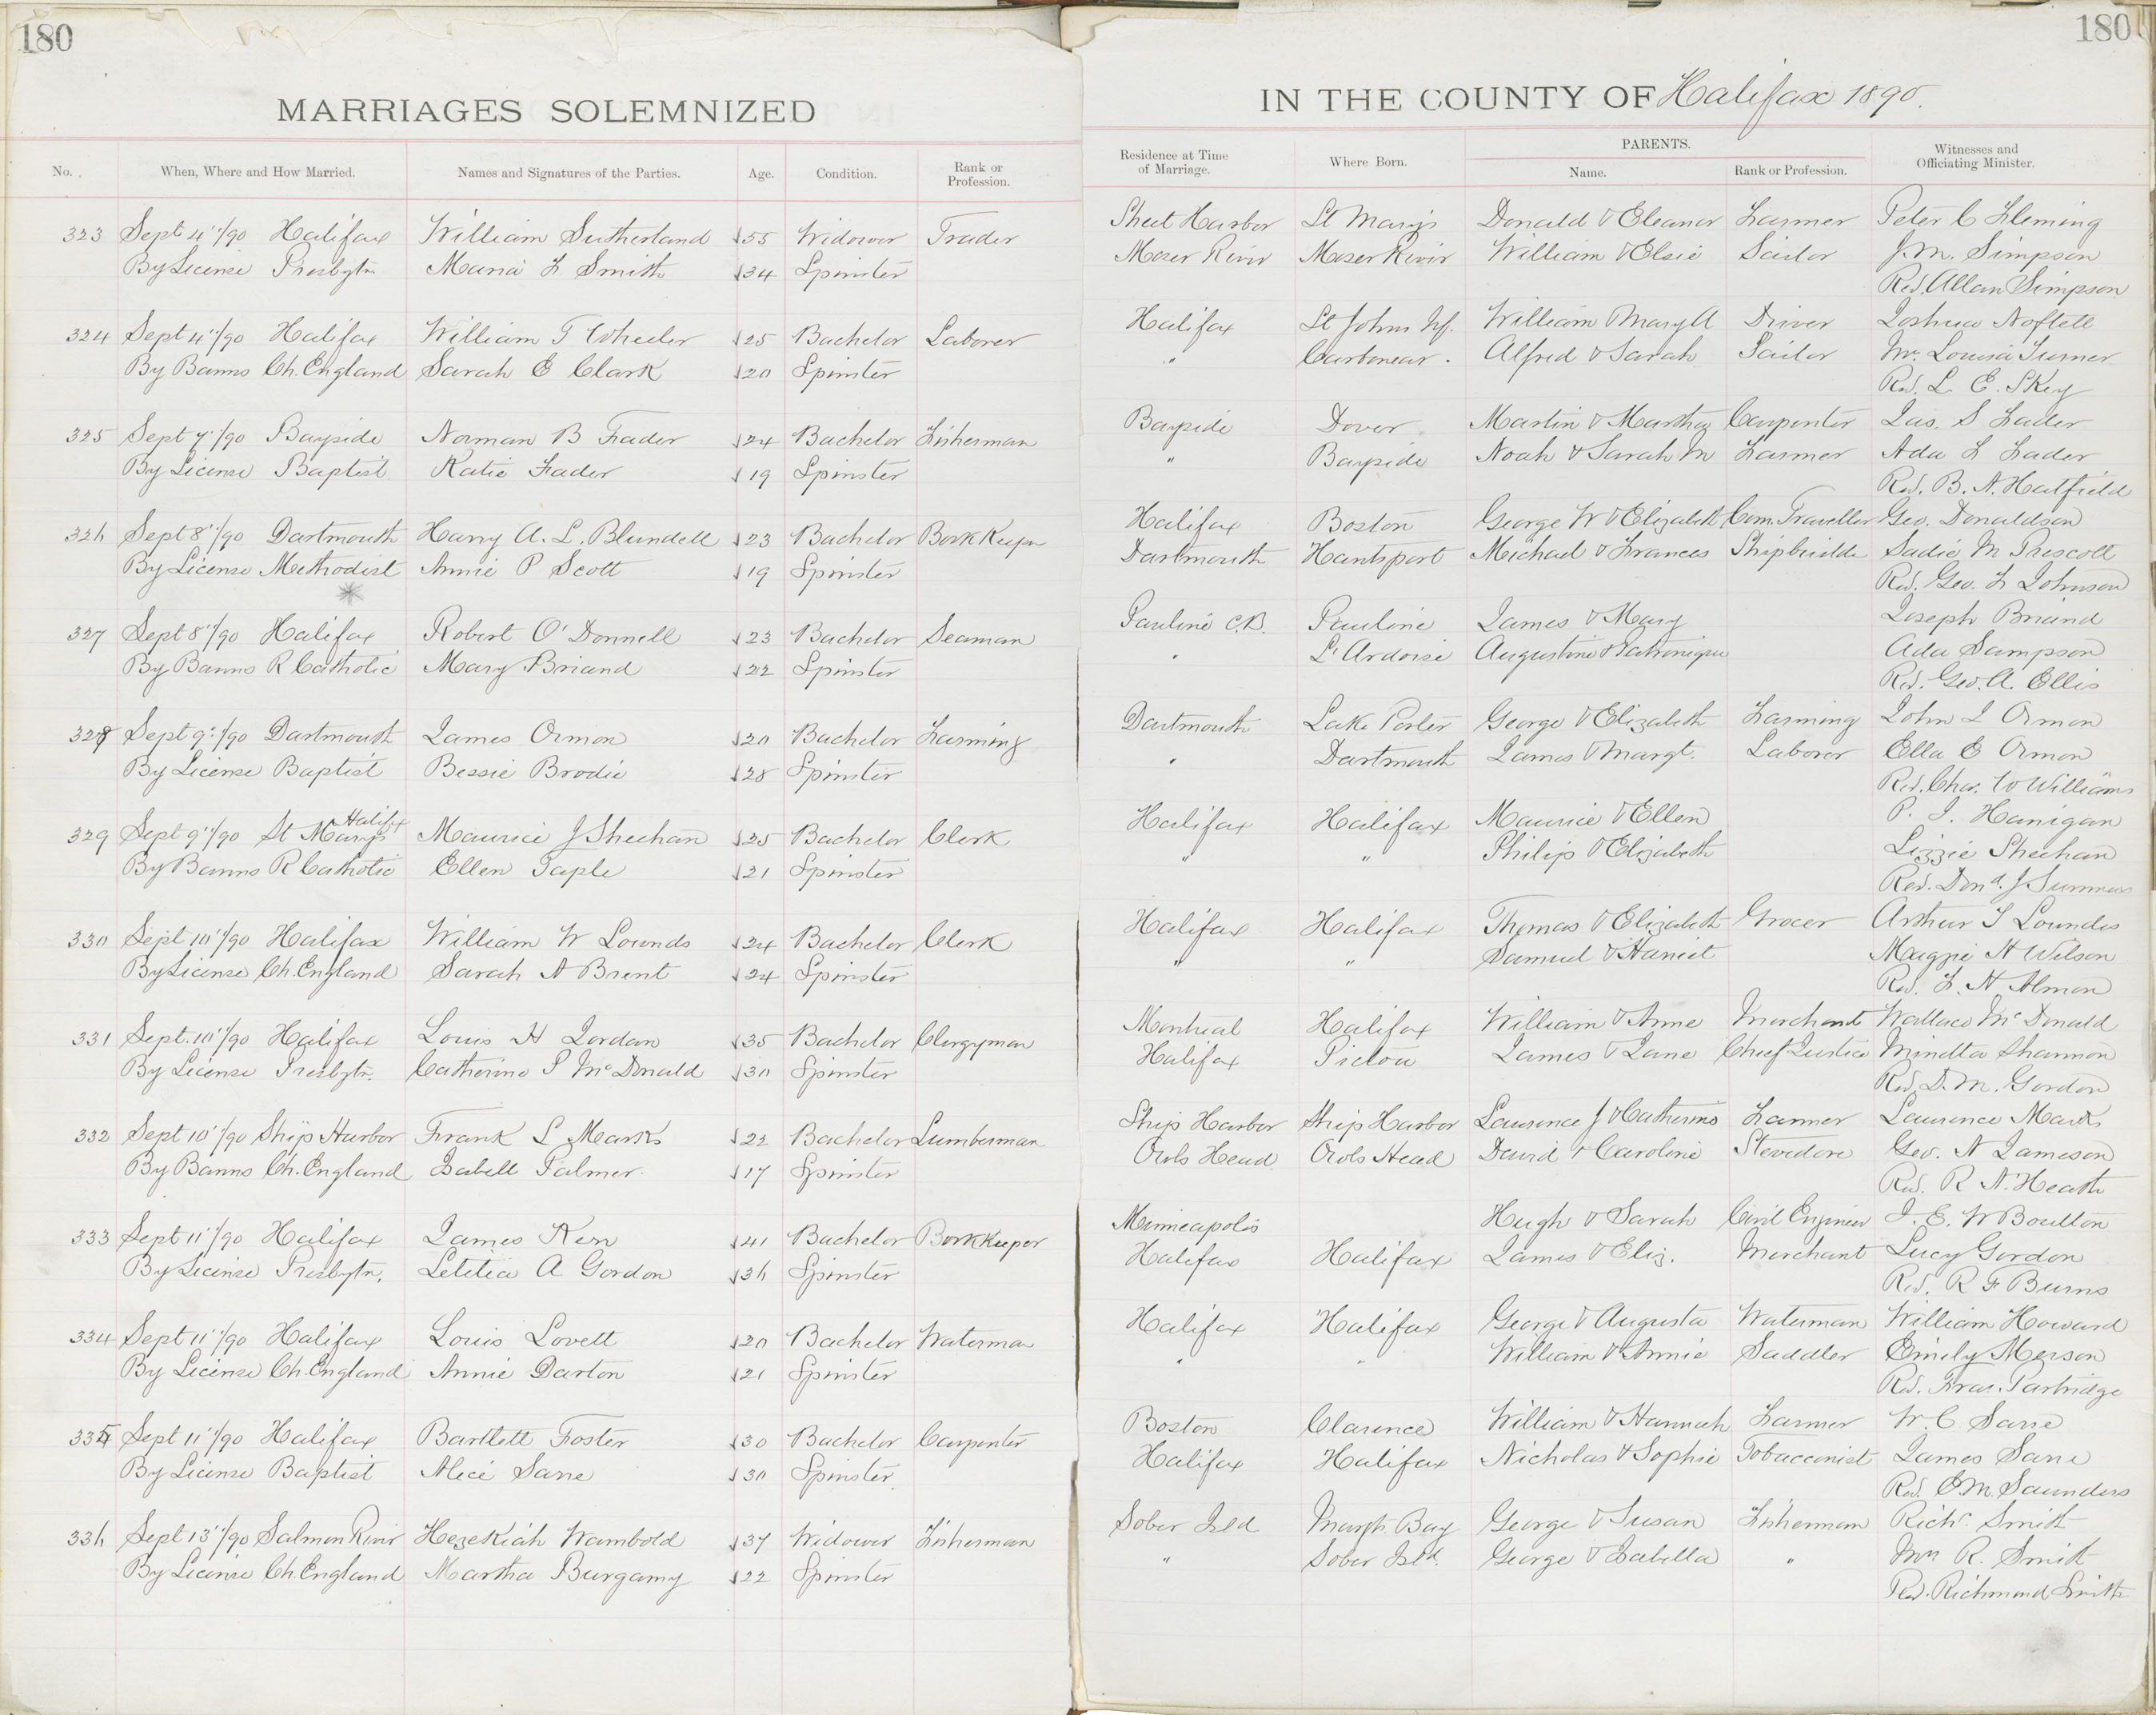 180
180
MARRIAGES SOLEMNIZED
IN THE COUNTY OF Halifax 1890.
No. When, Where and How Married. Names and Signatures of the Parties. Age. Condition. Rank or Profession. Residence at Time of Marriage. Where Born. PARENTS. Name. Rank or Profession. Witnesses and Officiating Minister.
323 Sept 4"/90 Halifax William Sutherland 55 Widower Trader Sheet Harbor St Marys Donald & Eleanor Farmer Peter C Fleming
By License Presbytn Maria F Smith 34 Spinster Moser River Moser River William & Elsie Sailor J. M. Simpson
Rev. Allan Simpson
324 Sept 4"/90 Halifax William T Wheeler 25 Bachelor Laborer Halifax St Johns Nf. William Mary A Driver Joshua Noftell
By Banns Ch. England Sarah E Clark 20 Spinster " Carbonear. Alfred & Sarah Sailor Mrs Louisa Turner
Rev. L. E. Skey
325 Sept 7"/90 Bayside Norman B Fader 24 Bachelor Fisherman Bayside Dover Martin & Martha Carpenter Jas. S Fader
By License Baptist Katie Fader 19 Spinster " Bayside Noah & Sarah M Farmer Ada F Fader
Rev. B. N. Hatfield
326 Sept 8"/90 Dartmouth Harry A. L. Blundell 23 Bachelor Book Keeper Halifax Boston George W & Elizabeth Com. Traveller Geo. Donaldson
By License Methodist Annie P Scott 19 Spinster Dartmouth Hantsport Michael & Frances Shipbuilder Sadie M Prescott
Rev. Geo. F Johnson
327 Sept 8"/90 Halifax Robert O'Donnell 23 Bachelor Seaman Pauline C.B. Pauline James & Mary Joseph Briand
By Banns R Catholic Mary Briand 22 Spinster " L'Ardoise Augustine & Joseph Ada Sampson
Rev. Geo. A. Ellis
328 Sept 9"/90 Dartmouth James Ormon 20 Bachelor Farming Dartmouth Lake Porter George & Elizabeth Farming John L Ormon
By License Baptist Bessie Brodie 28 Spinster " Dartmouth James & Margt. Laborer Ella E Ormon
Rev. Chas. W Williams
329 Sept 9"/90 St Marys Halifx Maurice J Sheehan 25 Bachelor Clerk Halifax Halifax Maurice & Ellen P. J. Hanigan
By Banns R Catholic Ellen Taple 21 Spinster " " Philip & Elizabeth Lizzie Sheehan
Rev. Dond. J Summers
330 Sept 10"/90 Halifax William W Lownds 24 Bachelor Clerk Halifax Halifax Thomas & Elizabeth Grocer Arthur T Lowndes
By License Ch. England Sarah A Brent 24 Spinster " " Samuel & Harriet Maggie H Wilson
Rev. F. H Almon
331 Sept. 10"/90 Halifax Louis H Jordan 35 Bachelor Clergyman Montreal Halifax William & Anne Merchant Wallace McDonald
By License Presbytn. Catherine P McDonald 30 Spinster Halifax Pictou James & Jane Chief Justice Minetta Shannon
Rev. D. M. Gordon
332 Sept 10"/90 Ship Harbor Frank L Marks 22 Bachelor Lumberman Ship Harbor Ship Harbor Lawrence J & Catherine Farmer Lawrence Marks
By Banns Ch. England Isabell Palmer 17 Spinster Owls Head Owls Head David & Caroline Stevedore Geo. N Jameson
Rev. R A. Heath
333 Sept 11"/90 Halifax James Kerr 41 Bachelor Book Keeper Minneapolis Hugh & Sarah Civil Engineer J. E. W Boulton
By License Presbytn. Letitia A Gordon 36 Spinster Halifax Halifax James & Eliz. Merchant Lucy Gordon
Rev. R F Burns
334 Sept 11"/90 Halifax Louis Lovett 20 Bachelor Waterman Halifax Halifax George & Augusta Waterman William Howard
By License Ch. England Annie Darton 21 Spinster " " William & Annie Saddler Emily Merson
Rev. Fras. Partridge
335 Sept 11"/90 Halifax Bartlett Foster 30 Bachelor Carpenter Boston Clarence William & Hannah Farmer W. C. Sarre
By License Baptist Alice Sarre 30 Spinster Halifax Halifax Nicholas & Sophie Tobacconist James Sarre
Rev. E. M. Saunders
336 Sept 13"/90 Salmon River Hezekiah Wambold 37 Widower Fisherman Sober Isld Bay George & Susan Fisherman Richd. Smith
By License Ch. England Martha Burgamy 22 Spinster " Sober Isld. George & Isabella " Mrs R. Smith
Rev. Richmond Smith